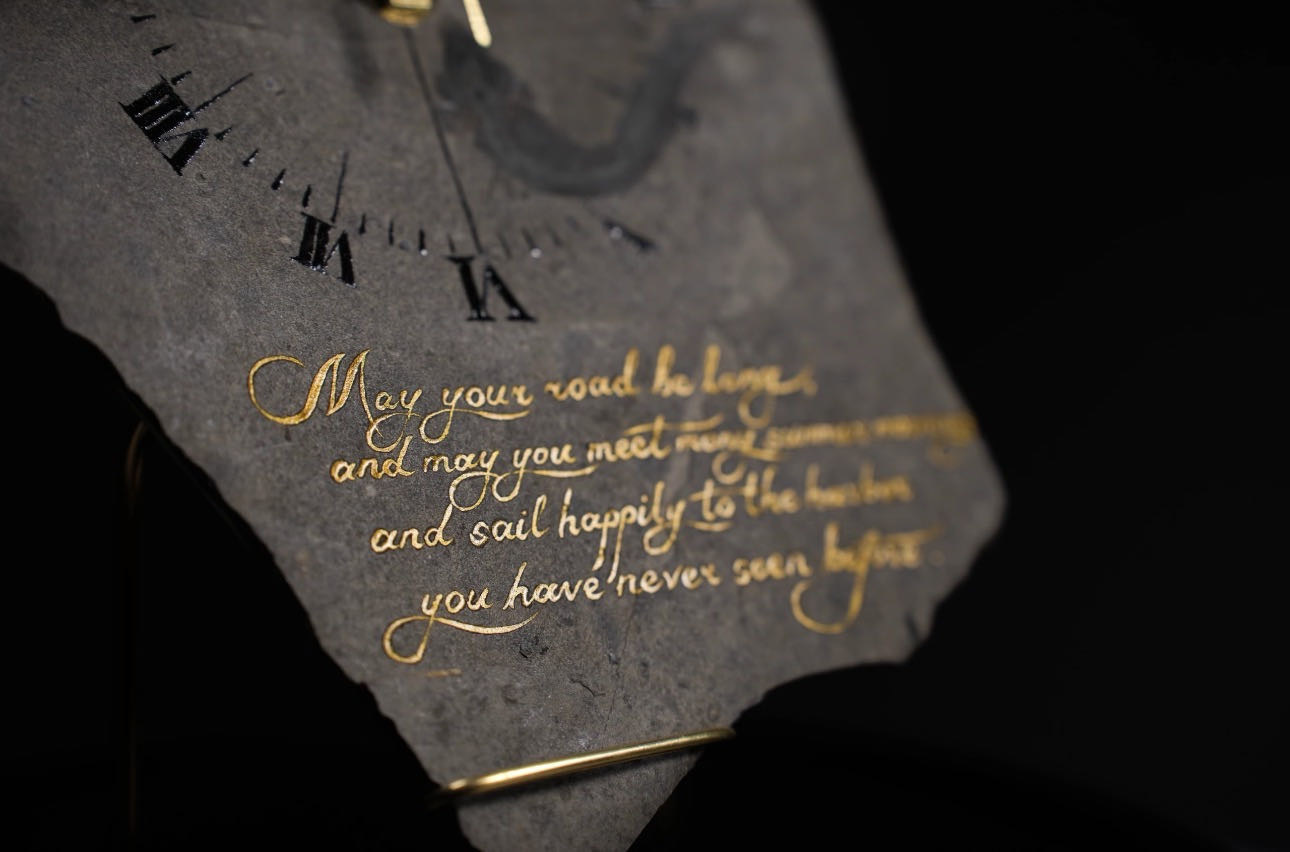 VIII
VII
VI
May your road be long,
and may you meet many summer mornings
and sail happily to the harbor
you have never seen before.